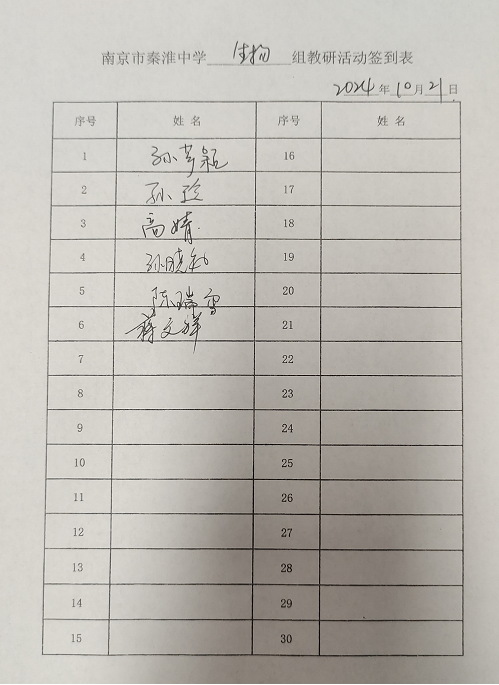 南京市秦淮中学 生物 组教研活动签到表
2024年10月21日
序号 姓名 序号 姓名
1 孙 颖 16
2 孙 17
3 高婧 18
4 孙晓 19
5 陈瑞雪 20
6 蒋文祥 21
7 22
8 23
9 24
10 25
11 26
12 27
13 28
14 29
15 30